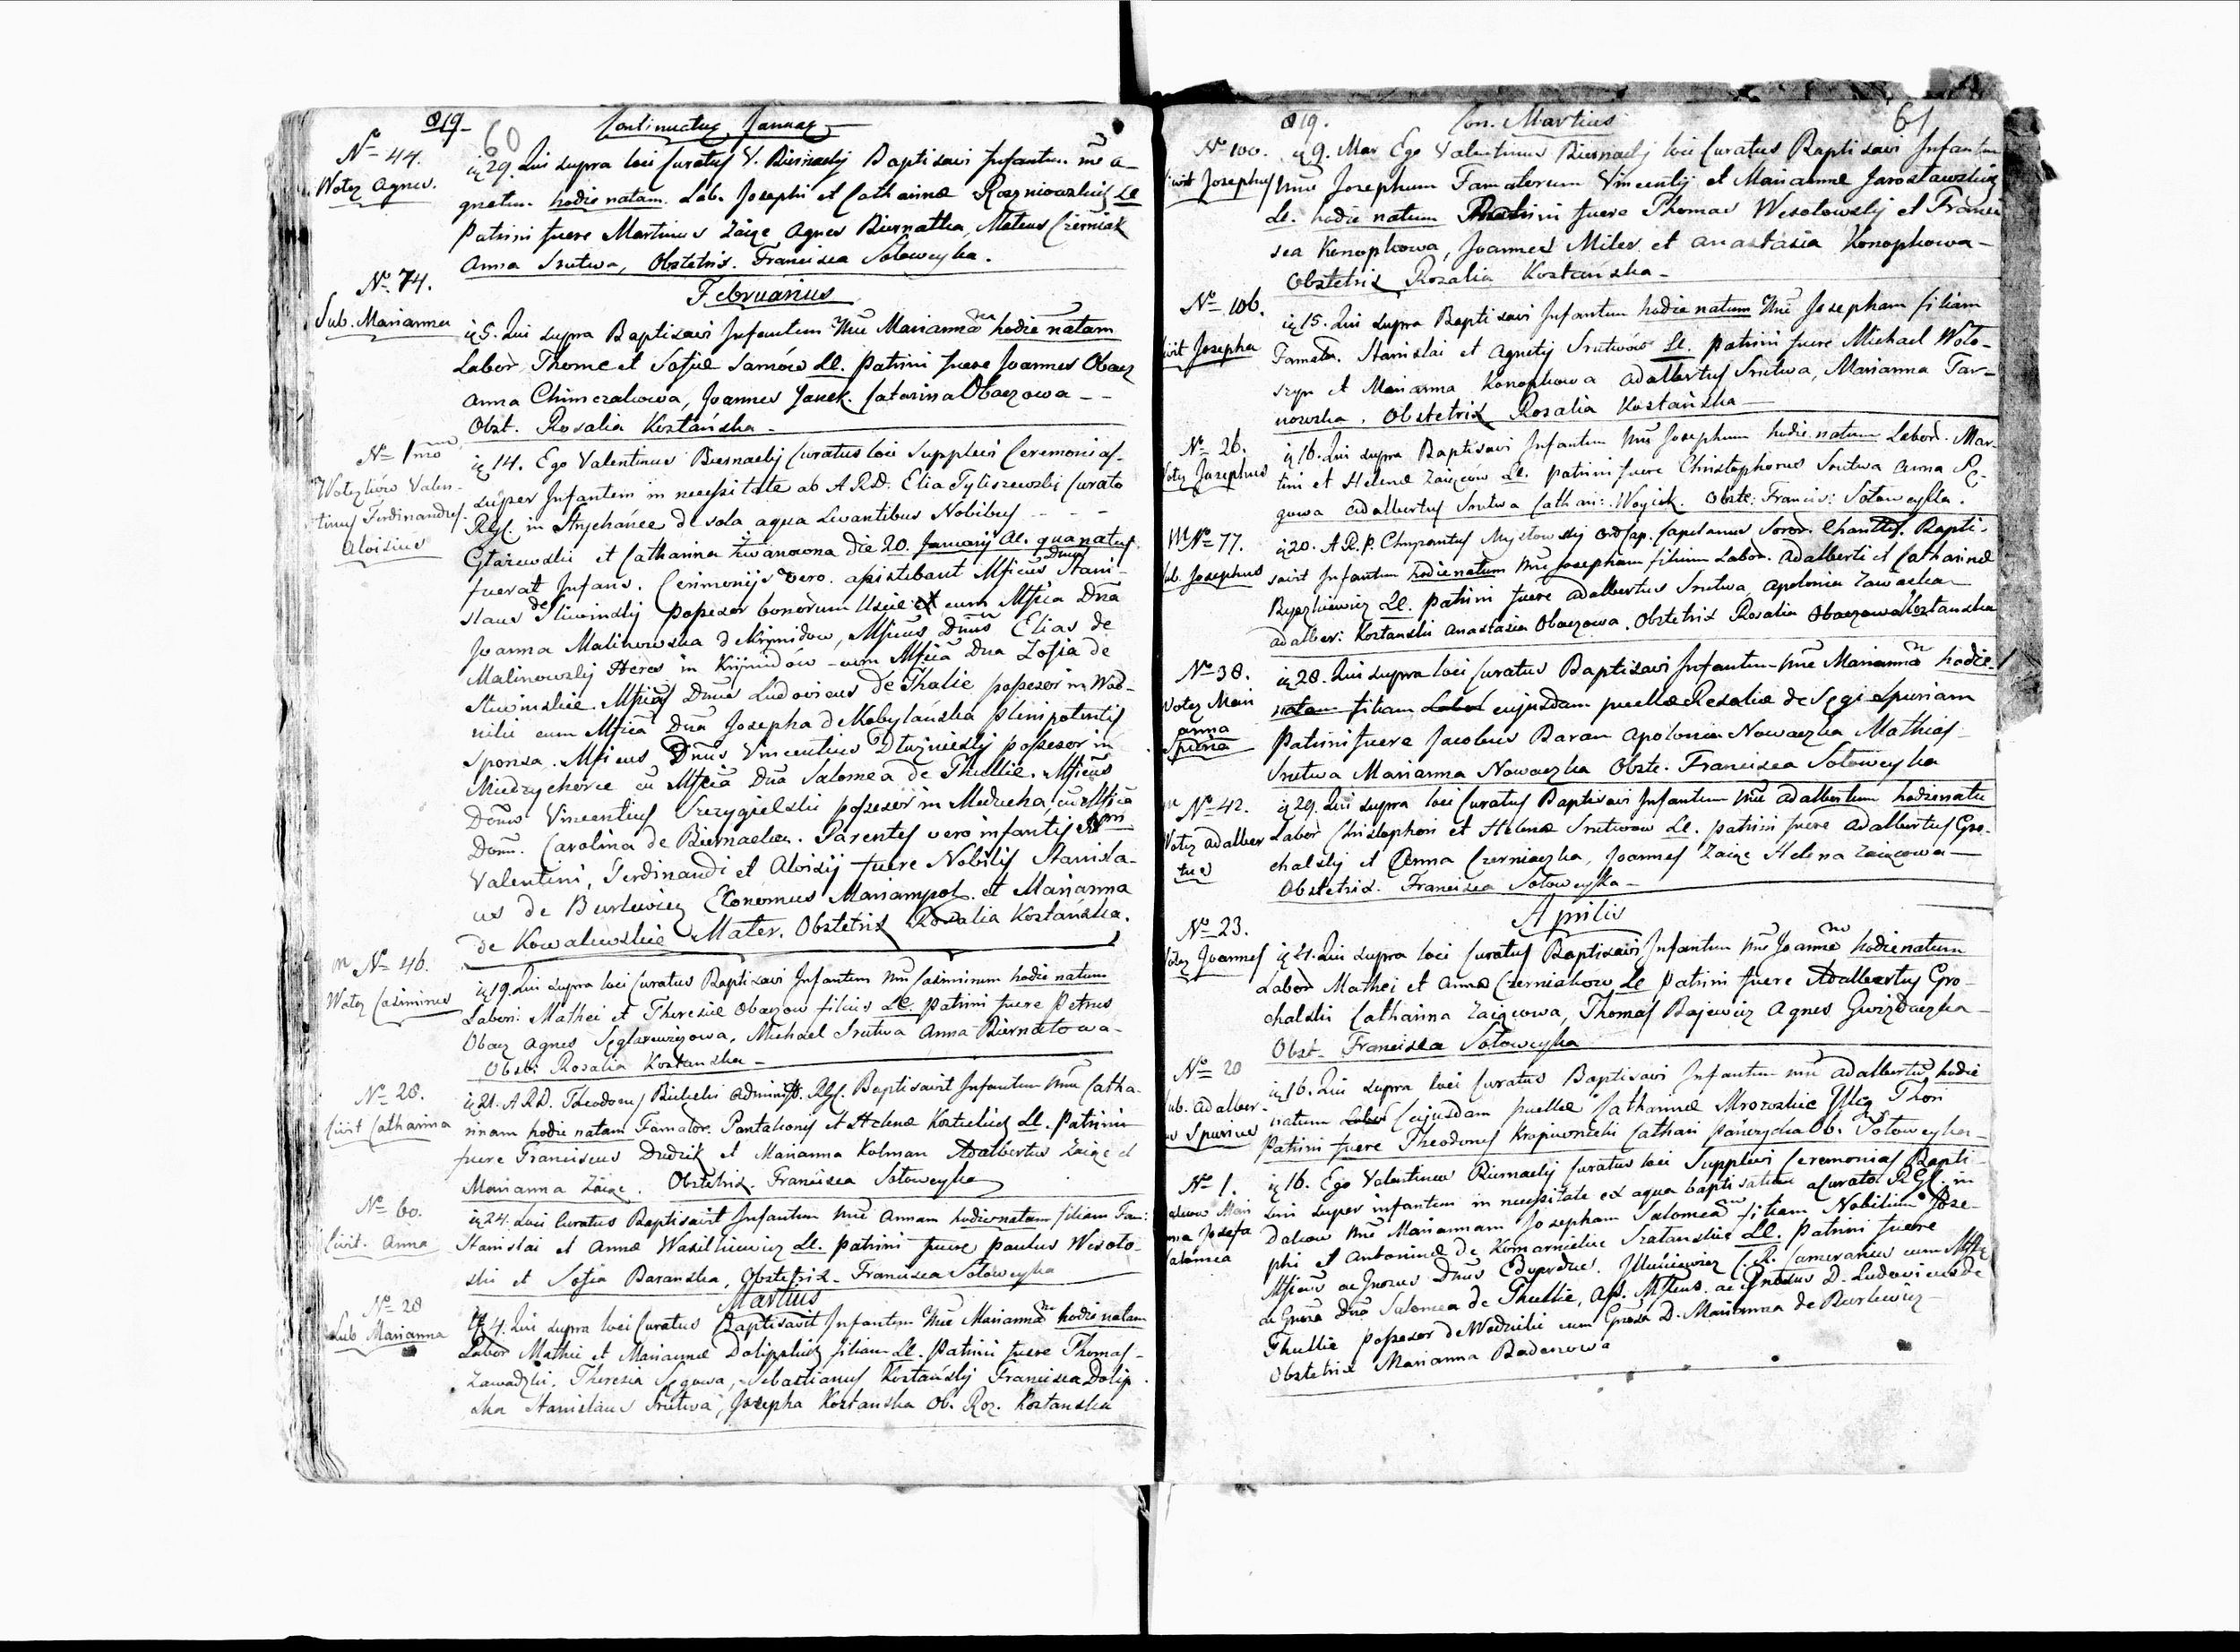 819. 60 Continuatur Januar
No 44.
Wołcz Agnes.
in 29. Qui supra loci Curatus V. Biernacky Baptisavi Infantem nne A-
gnetem hodie natam. Lab. Josephi et Catharinæ Rozniowskich LL
Patrini fuere Martinus Zaiąc Agnes Biernatka, Mateus Czerniak
Anna Srutwa, Obstetrix. Francisca Sołoweyka.
Februarius
No. 74.
Sub. Marianna
in 5. Qui supra Baptisavi Infantem Nne Mariannam hodie natam
Labor Thome et Sofiæ Sarnów LL. Patrini fuere Joannes Obacz
Anna Chimczakowa, Joannes Janek. Catarina Obaczowa - -
Obst. Rosalia Kostańska -
No 1mo
Wołczków Valen-
tinus Ferdinandus
Aloisius
in 14. Ego Valentinus Biernacky Curatus loci Supplevi Ceremonias
super Infantem in necessitate ab A.R.D. Elia Tyliszewski Curato
RGC. in Strychańce de sola aqua Levantibus Nobilibus - - -
Głażewski et Catharina Iwanowna die 20. Januarij ac. qua natus
fuerat Infans. Cerimonijs vero. assistebant Mficus Dnus Stani-
slaus de Sliwinsky possesor bonorum Uscie et cum Mfica Dna
Joanna Malinowska de Krymidow, Mficus Dnus Elias de
Malinowsky Heres in Krymidów - cum Mfica Dna Zofia de
Sliwinskie. Mficus Dnus Ludovicus de Thulie possesor in Wod-
niki cum Mfica Dna Josepha de Kobylańska plenipotentis
sponsa. Mficus Dnus Vincentius Dłużniesky possesor in
Miedzyhorce cu Mfica Dna Salomea de Thullie. Mficus
Dnus Vincentius Szczygielski possesor in Meducha, cu Mfica
Dom. Carolina de Biernackie. Parentes vero infantis Nni
Valentini, Ferdinandi et Aloisij fuere Nobilis Stanisla-
us de Burkiewicz Œconomus Mariampol. et Marianna
de Kowalewskie Mater. Obstetrix Rosalia Kostańska.
No 46.
Wołcz Casimirus
in 19. Qui supra loci Curatus Baptisavi Infantem Nne Casimirum hodie natum
Labori: Mathei et Theresiæ Obaczow filius LL. Patrini fuere Petrus
Obacz Agnes Sęglarewiczowa, Michael Srutwa Anna Biernatowa -
Obst: Rosalia Kostanska -
No 28.
Civit Catharina
in 21. A.R.D. Theodorus Bielecki Administ. RGC. Baptisavit Infantem Nne Catha-
rinam hodie natam Famator. Pantaleonis et Helenæ Kostielich LL. Patrini
fuere Franciscus Dudzik et Marianna Kolman Adalbertus Zaiąc et
Marianna Zaiąc. Obstetrix. Francisca Sołoweyka
No 60.
Civit. Anna
in 24. Loci Curatus Baptisavit Infantem Nne Annam hodie natam filiam Fam:
Stanislai et Annæ Wasilkiewicz LL. Patrini fuere Paulus Wesoło-
ski et Sofia Baranska, Obstetrix - Francisca Sołoweyka
Martius
No 28
Sub Marianna
in 4. Qui supra loci Curatus Baptisavit Infantem Nne Mariannam hodie natam
Labor Mathie et Mariannæ Dolipskich filiam LL. Patrini fuere Thomas -
Zawadzki. Theresia Sęgowa, Sebastianus Kostańsky Francisca Dolip
ska Stanislaus Srutwa, Josepha Kostanska Ob. Roz. Kostanska
819. Con. Martius 61
No 100.
Civit Josephus
in 9. Mar Ego Valentinus Biernacky loci Curatus Baptisavi Infantem
Nne Josephum Famatorum Vincentij et Mariannæ Jarosławskich
LL. hodie natum Patrini fuere Thomas Wesołowsky et Franci
sca Konopkowa, Joannes Miles et Anastasia Konopkowa -
Obstetrix Rosalia Kostańska -
No 106.
Civit Josepha
in 15. Qui supra Baptisavi Infantem hodie natum Nne Josepham filiam
Famator. Stanislai et Agnetis Srutwów LL. Patrini fuere Michael Woło-
szyn et Marianna Konopkowa Adalbertus Srutwa, Marianna Tar-
nowska. Obstetrix Rosalia Kostańska
No 26.
Wołcz Josephus
in 16. Qui supra Baptisavi Infantem Nne Josephum hodie natum Labor. Mar-
tini et Helenæ Zaięców LL. Patrini fuere Christophorus Srutwa Anna Sę-
gowa Adalbertus Srutwa Cathari: Woycik. Obste: Francis: Sołoweyka.
No 77.
Sub. Josephus
in 20. A.R.P. Chrysantus Mysłowsky Ord Cap. Capelanus Soror. Charitat. Bapti-
savit Infantem hodie natum Nne Josepham filium Labor. Adalberti et Catharinæ
Ryszkiewicz LL. Patrini fuere Adalbertus Srutwa, Apolonia Zawacka
Adalber: Kostanski Anastasia Obaczowa. Obstetrix Rosalia Obaczowa Kostanska
No 38.
Wołcz Mari
anna
Spuria
in 28. Qui supra loci Curatus Baptisavi Infantem Nne Mariannam hodie
natam filiam Labor cujusdam puellæ Rosaliæ de Sęgi Spuriam
Patrini fuere Jacobus Baran Apolonia Nowaczka Mathias
Srutwa Marianna Nowaczka Obste. Francisca Sołoweyka
No 42.
Wołcz Adalber
tus
in 29. Qui supra loci Curatus Baptisavi Infantem Nne Adalbertum hodie natu
Labor Christophori et Helenæ Srutwow LL. Patrini fuere Adalbertus Gro-
chalsky et Anna Czerniaczka, Joannes Zaiąc Helena Zaięcowa -
Obstetrix. Francisca Sołoweyka -
Aprilis
No 23.
Wołcz Joannes
in 21. Qui supra loci Curatus Baptisavi Infantem Nne Joannem hodie natum
Labor Mathei et Annæ Czerniakow LL Patrini fuere Adalbertus Gro
chalski Catharina Zaięcowa, Thomas Bajewicz Agnes Gwizdaczka -
Obst - Francisca Sołoweyka
No 20
Sub. Adalber-
us Spurius
in 16. Qui supra loci Curatus Baptisavi Infantem Nne Adalbertu hodie
natum Labor Cujusdam puellæ Catharinæ Mrozoskie Illeg Thori
Patrini fuere Theodorus Kropiwnicki Cathari Pańczycha Ob. Sołoweyka -
No 1.
Mari
nna Josefa
Salomea
in 16. Ego Valentinus Biernacky Curatus loci Supplevi Ceremonias Bapti
smi super infantem in necessitate ex aqua baptisatum a Curato RGC. in
Dolhow Nne Mariannam Josepham Salomeam filiam Nobilium Jose-
phi et Antoninæ de Komarnickie Szatanskie LL. Patrini fuere
Mficus ac Gnosus Dnus Eduardus. C.R. Camerarius cum Mfca
ac Gnosa Dna Salomea de Thullie, Ass. Mficus. ac Gnosus D. Ludovicus de
Thullie possesor de Wodniki cum Gnosa D. Marianna de Burkiewicz -
Obstetrix Marianna Badenowa